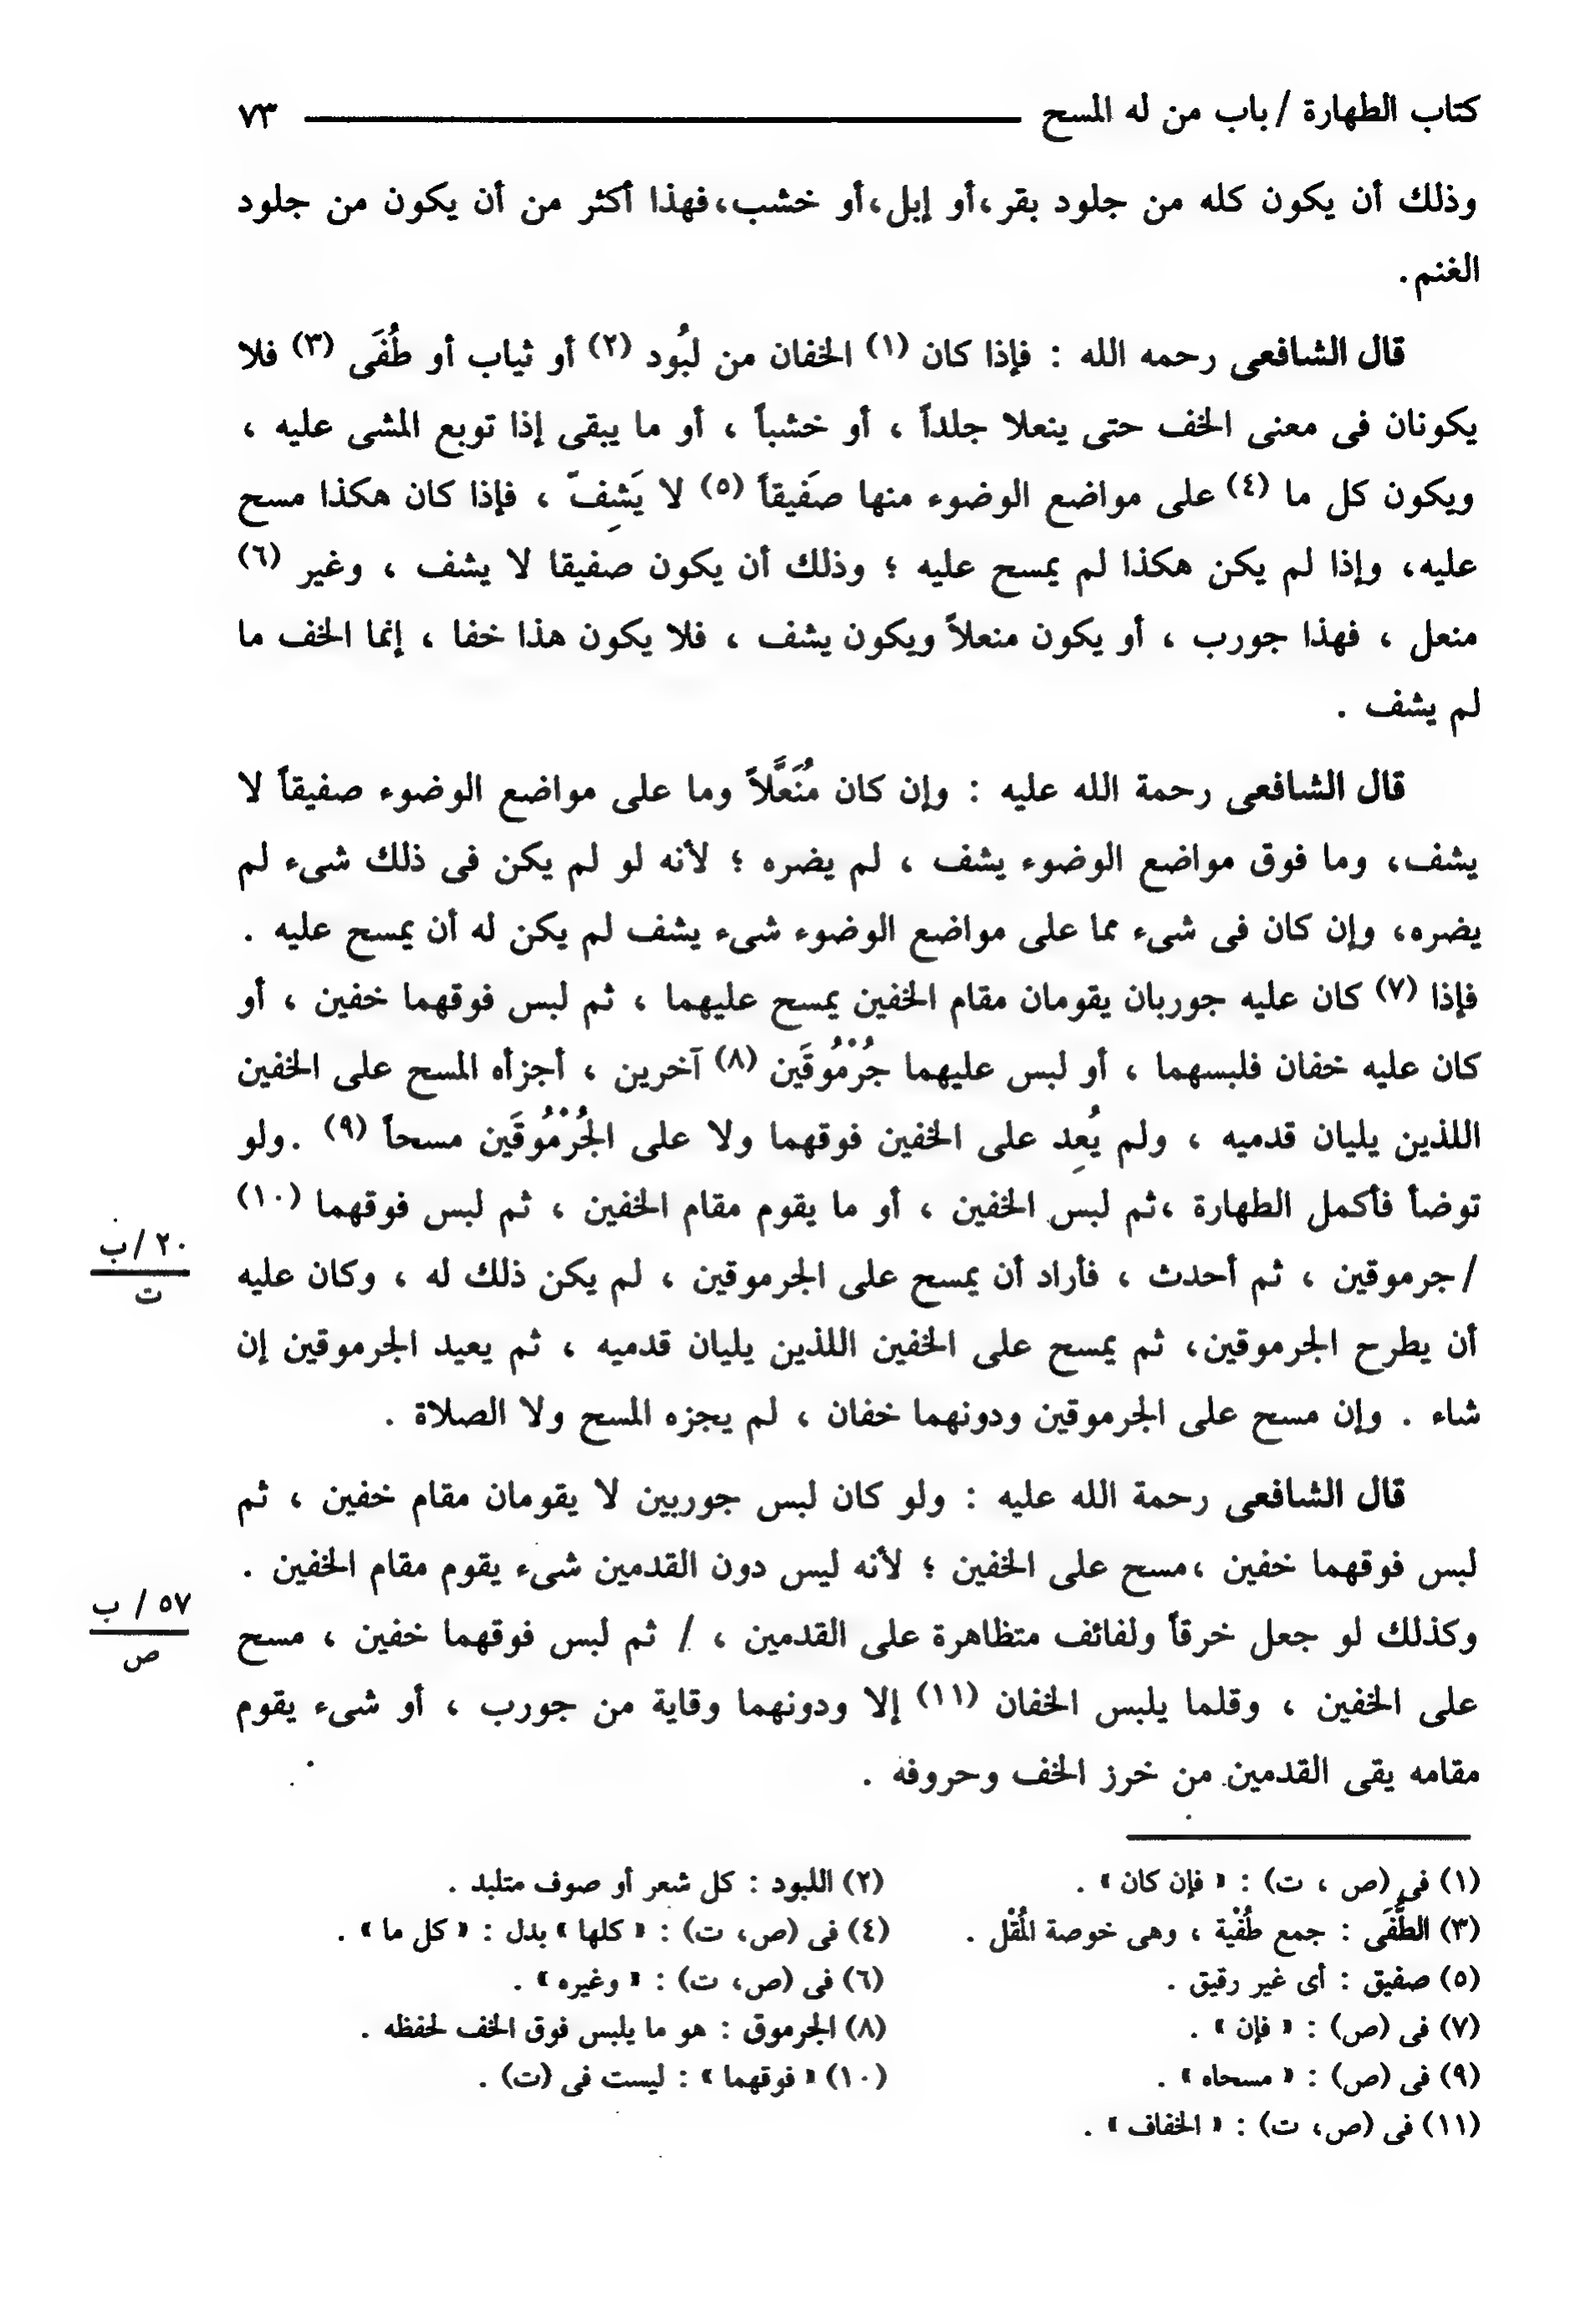 كتاب الطهارة / باب من له المسح ٧٣
وذلك أن يكون كله من جلود بقر،أو إبل،أو خشب،فهذا أكثر من أن يكون من جلود
الغنم.
قال الشافعى رحمه الله : فإذا كان (١) الخفان من لبُود (٢) أو ثياب أو طُفَى (٣) فلا
يكونان فى معنى الخف حتى ينعلا جلداً ، أو خشباً ، أو ما يبقى إذا توبع المشى عليه ،
ويكون كل ما (٤) على مواضع الوضوء منها صَفيقاً (٥) لا يَشِفّ ، فإذا كان هكذا مسح
عليه، وإذا لم يكن هكذا لم يمسح عليه ؛ وذلك أن يكون صفيقا لا يشف ، وغير (٦)
منعل ، فهذا جورب ، أو يكون منعلاً ويكون يشف ، فلا يكون هذا خفا ، إنما الخف ما
لم يشف .
قال الشافعى رحمة الله عليه : وإن كان مُنَعَّلاً وما على مواضع الوضوء صفيقاً لا
يشف، وما فوق مواضع الوضوء يشف ، لم يضره ؛ لأنه لو لم يكن فى ذلك شىء لم
يضره، وإن كان فى شىء مما على مواضع الوضوء شىء يشف لم يكن له أن يمسح عليه .
فإذا (٧) كان عليه جوربان يقومان مقام الخفين يمسح عليهما ، ثم لبس فوقهما خفين ، أو
كان عليه خفان فلبسهما ، أو لبس عليهما جُرْمُوقَين (٨) آخرين ، أجزأه المسح على الخفين
اللذين يليان قدميه ، ولم يُعِد على الخفين فوقهما ولا على الجُرْمُوقَين مسحاً (٩) .ولو
توضأ فأكمل الطهارة ،ثم لبس الخفين ، أو ما يقوم مقام الخفين ، ثم لبس فوقهما (١٠)
٢٠ /ب
ت
/ جرموقين ، ثم أحدث ، فأراد أن يمسح على الجرموقين ، لم يكن ذلك له ، وكان عليه
أن يطرح الجرموقين، ثم يمسح على الخفين اللذين يليان قدميه ، ثم يعيد الجرموقين إن
شاء . وإن مسح على الجرموقين ودونهما خفان ، لم يجزه المسح ولا الصلاة .
قال الشافعى رحمة الله عليه : ولو كان لبس جوربين لا يقومان مقام خفين ، ثم
لبس فوقهما خفين ،مسح على الخفين ؛ لأنه ليس دون القدمين شىء يقوم مقام الخفين .
٥٧ / ب
ص
وكذلك لو جعل خرقاً ولفائف متظاهرة على القدمين ، / ثم لبس فوقهما خفين ، مسح
على الخفين ، وقلما يلبس الخفان (١١) إلا ودونهما وقاية من جورب ، أو شىء يقوم
مقامه يقى القدمين من خرز الخف وحروفه .
(١) فى (ص ، ت) : « فإن كان » .
(٢) اللبود : كل شعر أو صوف متلبد .
(٣) الطُّفَى : جمع طُفْية ، وهى خوصة المُقْل .
(٤) فى (ص، ت) : « كلها » بدل : « كل ما » .
(٥) صفيق : أى غير رقيق .
(٦) فى (ص، ت) : « وغيره » .
(٧) فى (ص) : « فإن » .
(٨) الجرموق : هو ما يلبس فوق الخف لحفظه .
(٩) فى (ص) : « مسحاه » .
(١٠) « فوقهما » : ليست فى (ت) .
(١١) فى (ص، ت) : « الخفاف » .